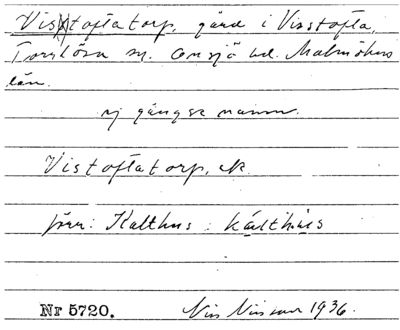 Vistoftatorp, gård i Visstofta,
Torrlösa sn. Onsjö hd. Malmöhus
län.
ej gängse namn.
Vistoftatorp, ek.
förr: Kalthus : kálthùs
Nr 5720. Nils Nilsson 1936.